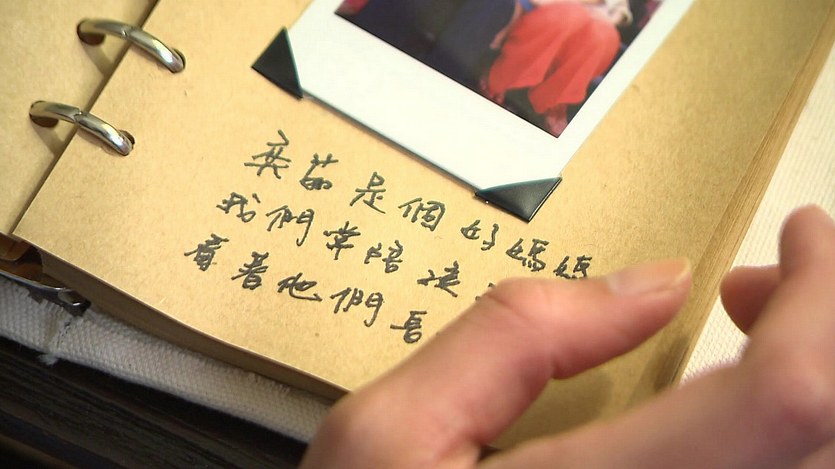 奕茹是個好媽媽
我們常陪凌
看著他們喜